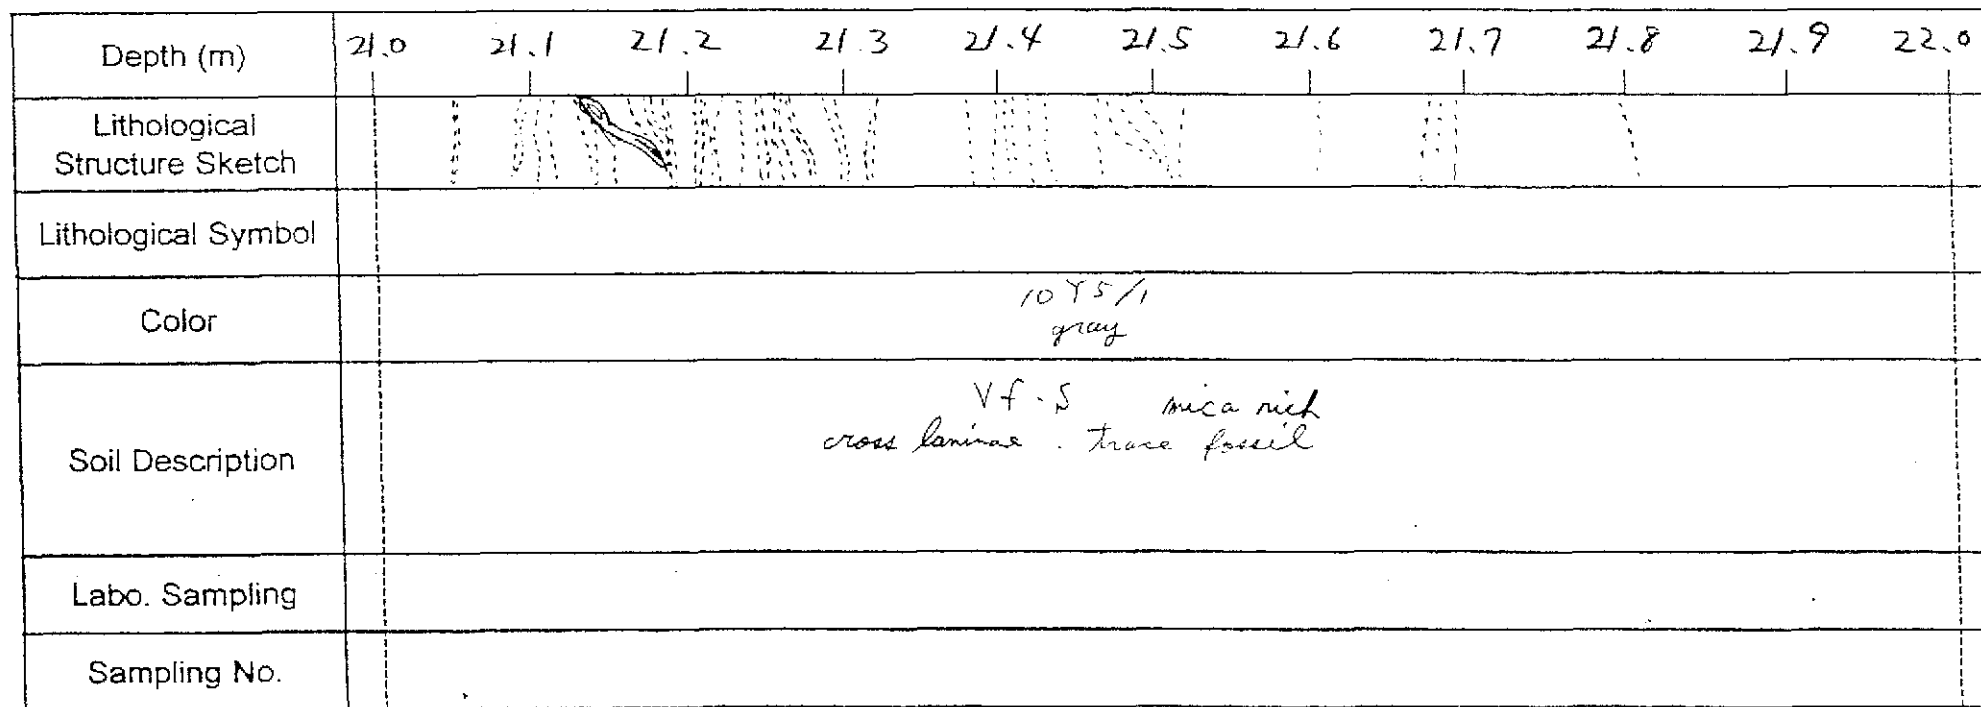 Depth (m) 21.0 21.1 21.2 21.3 21.4 21.5 21.6 21.7 21.8 21.9 22.0
Lithological
Structure Sketch
Lithological Symbol
Color
10Y5/1
gray
Soil Description
Vf-S mica rich
cross laminae . trace fossil
Labo. Sampling
Sampling No.